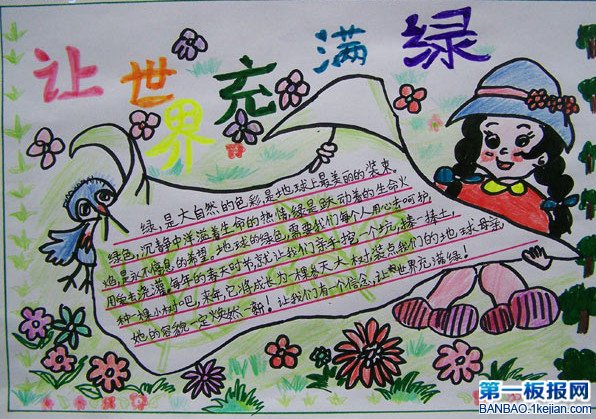 让世界充满绿
绿,是大自然的色彩,是地球上最美丽的装束,
绿色,沉静中洋溢着生命的热情,绿是跃动着的生命火
焰,是永不停息的希望。地球的绿色,需要我们每个人用心来呵护
用爱去浇灌,每年的春天时节,就让我们亲手挖一个坑,捧一抔土,
种一棵小树吧,来年,它将成长为一棵参天大树,装点我们的地球母亲
她的容貌一定焕然一新!让我们有个信念,让世界充满绿!
第一板报网
BANBAO.1kejian.com